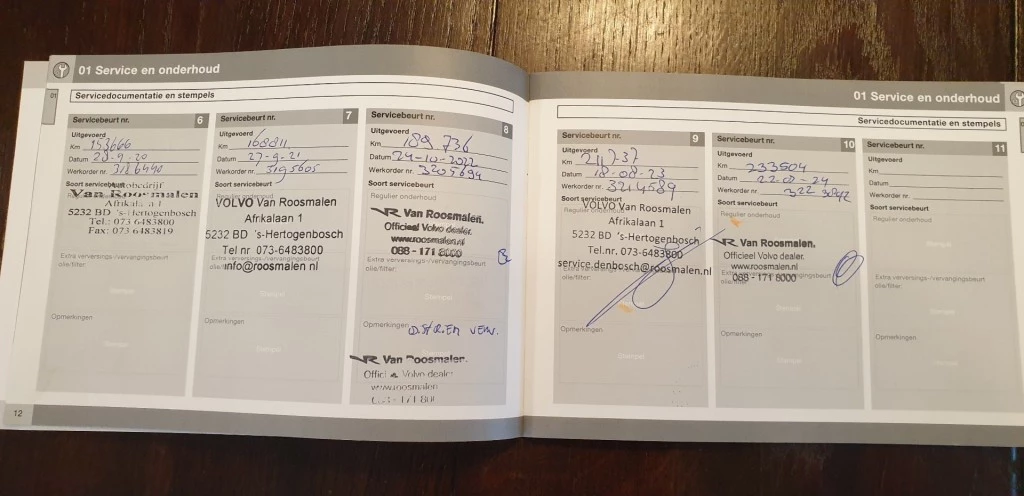 01 Service en onderhoud
01
Servicedocumentatie en stempels
Servicebeurt nr. 6
Uitgevoerd
Km 153666
Datum 28-9-20
Werkorder nr.
Soort servicebeurt
Autobedrijf
Van Roosmalen
Afrikalaan 1
5232 BD 's-Hertogenbosch
Tel.: 073 6483800
Fax: 073 6483819
Extra verversings-/vervangingsbeurt
olie/filter:
Stempel
Opmerkingen
Stempel
Servicebeurt nr. 7
Uitgevoerd
Km 168811
Datum 27-9-21
Werkorder nr. 3195605
Soort servicebeurt
VOLVO Van Roosmalen
Afrikalaan 1
5232 BD 's-Hertogenbosch
Tel nr 073-6483800
Extra verversings-/vervangingsbeurt
info@roosmalen.nl
olie/filter:
Stempel
Opmerkingen
Stempel
Servicebeurt nr. 8
Uitgevoerd
Km 189 736
Datum 24-10-2022
Werkorder nr. 3205694
Soort servicebeurt
Regulier onderhoud
VR Van Roosmalen.
Officieel Volvo dealer.
www.roosmalen.nl
088 - 171 8000
Extra verversings-/vervangingsbeurt
olie/filter:
Stempel
Opmerkingen
VR Van Roosmalen.
Officieel Volvo dealer
www.roosmalen
12
01 Service en onderhoud
Servicedocumentatie en stempels
Servicebeurt nr. 9
Uitgevoerd
Km 211737
Datum 18-08-23
Werkorder nr. 3214589
Soort servicebeurt
Regulier onderhoud
VOLVO Van Roosmalen
Afrikalaan 1
5232 BD 's-Hertogenbosch
Tel.nr. 073-6483800
Extra verversings-/vervangingsbeurt
service.denbosch@roosmalen.nl
olie/filter:
Opmerkingen
Stempel
Servicebeurt nr. 10
Uitgevoerd
Km 233504
Datum 22-08-24
Werkorder nr. 322 3042
Soort servicebeurt
Regulier onderhoud
VR Van Roosmalen.
Officieel Volvo dealer.
www.roosmalen.nl
Extra verversings-/vervangingsbeurt
088 - 171 8000
olie/filter:
Stempel
Opmerkingen
Stempel
Servicebeurt nr. 11
Uitgevoerd
Km
Datum
Werkorder nr.
Soort servicebeurt
Regulier onderhoud
Stempel
Extra verversings-/vervangingsbeurt
olie/filter:
Stempel
Opmerkingen
Stempel